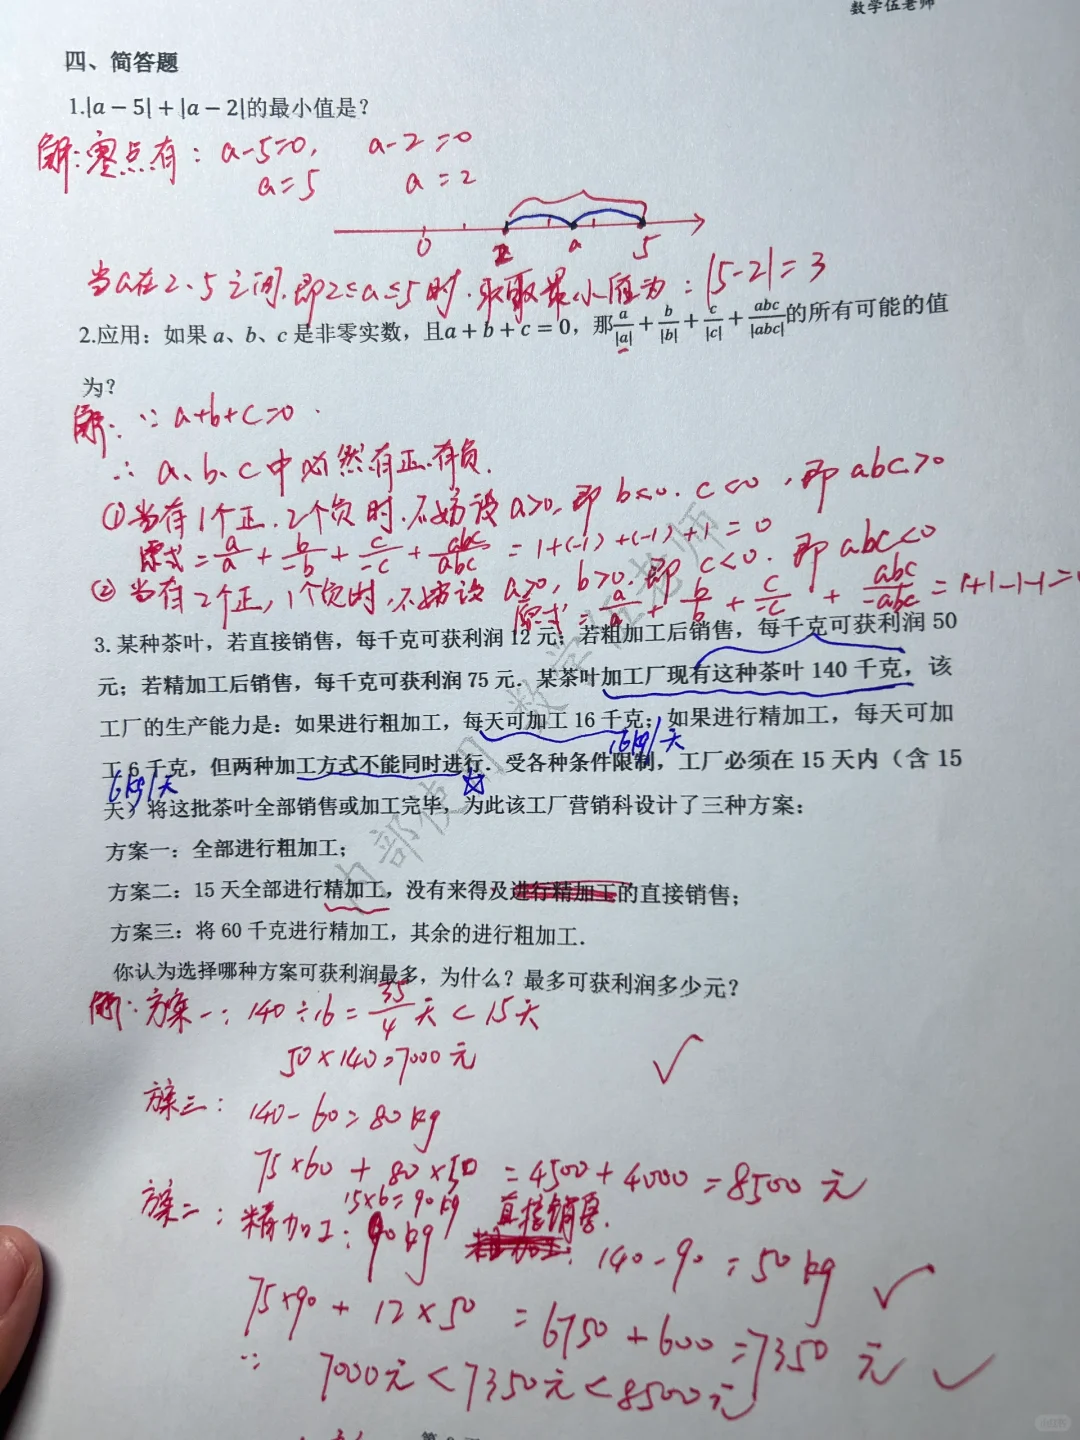 数学伍老师
四、简答题
1.|a − 5| + |a − 2|的最小值是？
解：零点有：a-5=0,  a-2=0
a=5  a=2
0 2 a 5
当a在2、5之间,即2≤a≤5时.取最小值为：|5-2|=3
2.应用：如果 a、b、c 是非零实数，且a + b + c = 0，那a/|a| + b/|b| + c/|c| + abc/|abc|的所有可能的值
为？
解：∵ a+b+c=0.
∴ a、b、c中必然有正、有负.
①当有1个正.2个负时.不妨设a>0,即b<0.c<0，即abc>0
原式=a/a + b/-b + c/-c + abc/abc = 1+(-1)+(-1)+1=0
②当有2个正,1个负时,不妨设a>0,b>0.即c<0.即abc<0
原式=a/a + b/b + c/-c + abc/-abc = 1+1-1-1=0
3. 某种茶叶，若直接销售，每千克可获利润 12 元；若粗加工后销售，每千克可获利润 50
元；若精加工后销售，每千克可获利润 75 元．某茶叶加工厂现有这种茶叶 140 千克，该
工厂的生产能力是：如果进行粗加工，每天可加工 16 千克；如果进行精加工，每天可加
16kg/天
工 6 千克，但两种加工方式不能同时进行．受各种条件限制，工厂必须在 15 天内（含 15
6kg/天
天）将这批茶叶全部销售或加工完毕，为此该工厂营销科设计了三种方案：
方案一：全部进行粗加工；
方案二：15 天全部进行精加工，没有来得及进行精加工的直接销售；
方案三：将 60 千克进行精加工，其余的进行粗加工．
你认为选择哪种方案可获利润最多，为什么？最多可获利润多少元？
内部使用 数学伍老师
解：方案一：140÷16=35/4天<15天
50×140=7000元
方案三：140-60=80kg
75×60+80×50=4500+4000=8500元
15×6=90kg
方案二：精加工：90kg 直接销售. 140-90=50kg
75×90+12×50=6750+600=7350元
∵ 7000元<7350元<8500元